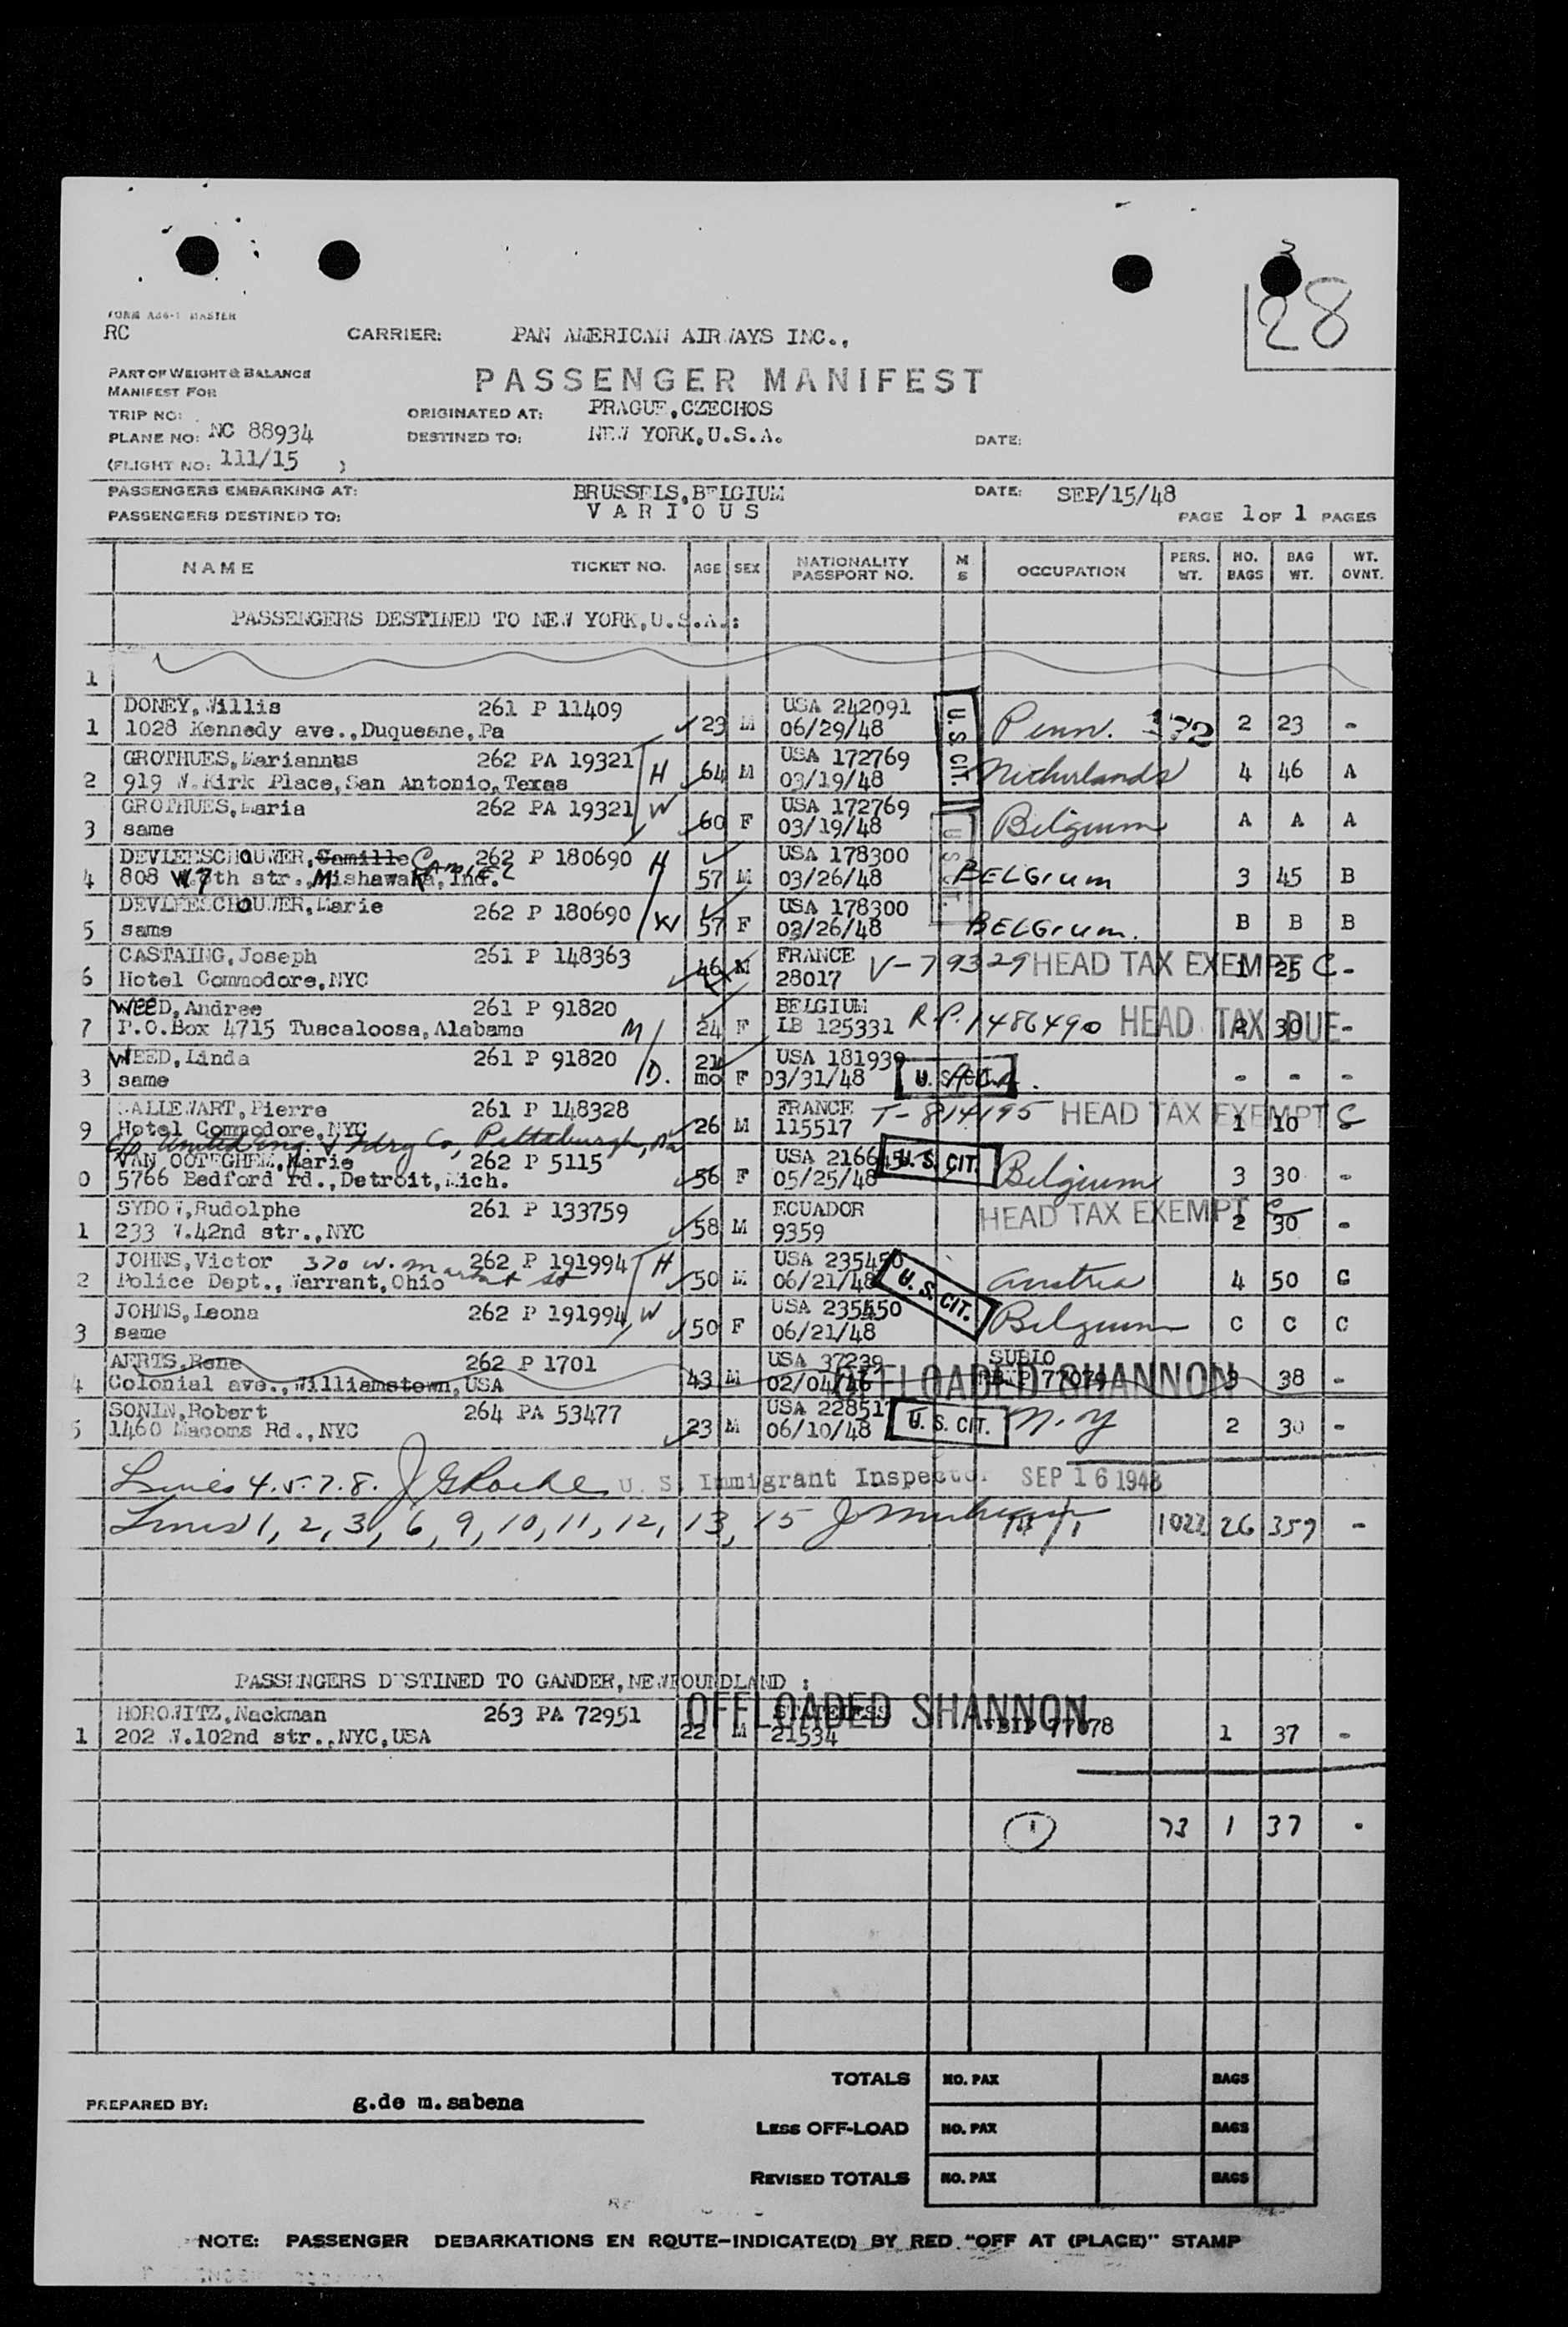 28
FORM A36-1 MASTER
RC CARRIER: PAN AMERICAN AIRWAYS INC.,
PART OF WEIGHT & BALANCE
MANIFEST FOR
PASSENGER MANIFEST
TRIP NO: ORIGINATED AT: PRAGUE,CZECHOS
PLANE NO: NC 88934 DESTINED TO: NEW YORK,U.S.A. DATE:
(FLIGHT NO: 111/15 )
PASSENGERS EMBARKING AT: BRUSSELS,BELGIUM DATE: SEP/15/48
PASSENGERS DESTINED TO: VARIOUS PAGE 1 OF 1 PAGES
NAME TICKET NO. AGE SEX NATIONALITY PASSPORT NO. M S OCCUPATION PERS. WT. NO. BAGS BAG WT. WT. OVNT.
PASSENGERS DESTINED TO NEW YORK,U.S.A.:
1
DONEY,Willis 261 P 11409 USA 242091 U.S. CIT.
1 1028 Kennedy ave.,Duquesne,Pa 23 M 06/29/48 Penn. 2 23 -
GROTHUES,Mariannus 262 PA 19321 H USA 172769
2 919 W.Kirk Place,San Antonio,Texas 64 M 03/19/48 Netherlands 4 46 A
GROTHUES,Maria 262 PA 19321 W USA 172769 U.S. CIT.
3 same 60 F 03/19/48 Belgium A A A
DEVLEESCHOUWER,Camille CAMIEL 262 P 180690 H USA 178300
4 808 W.7th str.,Mishawaka,Ind. 57 M 03/26/48 BELGIUM 3 45 B
DEVLEESCHOUWER,Marie 262 P 180690 W USA 178300
5 same 57 F 03/26/48 BELGIUM. B B B
CASTAING,Joseph 261 P 148363 FRANCE V-79329 HEAD TAX EXEMPT C
6 Hotel Commodore,NYC 46 M 28017 1 25 -
WEED,Andree 261 P 91820 BELGIUM R.P. 1486490 HEAD TAX DUE
7 P.O.Box 4715 Tuscaloosa,Alabama M 24 F LB 125331 2 30 -
WEED,Linda 261 P 91820 21 USA 181939 U.S. CIT.
8 same D. mo F 03/31/48 - - -
WALLEWART,Pierre 261 P 148328 FRANCE T-814195 HEAD TAX EXEMPT C
9 Hotel Commodore,NYC 26 M 115517 1 10
c/o United Eng. & Fdry Co, Pittsburgh, Pa
VAN OOTEGHEM,Marie 262 P 5115 USA 2166 U.S. CIT.
0 5766 Bedford rd.,Detroit,Mich. 56 F 05/25/48 Belgium 3 30 -
SYDOW,Rudolphe 261 P 133759 ECUADOR HEAD TAX EXEMPT C
1 233 W.42nd str.,NYC 58 M 9359 2 30 -
JOHNS,Victor 370 W. Market St 262 P 191994 H USA 235450 U.S. CIT.
2 Police Dept.,Warrant,Ohio 50 M 06/21/48 Austria 4 50 C
JOHNS,Leona 262 P 191994 W USA 235450
3 same 50 F 06/21/48 Belgium C C C
AERTS,Rene 262 P 1701 USA 37239 SUBLO OFFLOADED SHANNON
4 Colonial ave.,Williamstown,USA 43 M 02/04/46 77079 3 38 -
SONIN,Robert 264 PA 53477 USA 228517 U.S. CIT. N.Y
5 1460 Macoms Rd.,NYC 23 M 06/10/48 2 30 -
Lines 4.5.7.8. U. S. Immigrant Inspector SEP 16 1948
Lines 1, 2, 3, 6, 9, 10, 11, 12, 13, 15 1022 26 359 -
PASSENGERS DESTINED TO GANDER,NEWFOUNDLAND :
HOROWITZ,Nackman 263 PA 72951 STATELESS OFFLOADED SHANNON
1 202 W.102nd str.,NYC,USA 22 M 21534 77078 1 37 -
1 73 1 37 -
TOTALS NO. PAX BAGS
PREPARED BY: g.de m.sabena
LESS OFF-LOAD NO. PAX BAGS
REVISED TOTALS NO. PAX BAGS
NOTE: PASSENGER DEBARKATIONS EN ROUTE-INDICATE(D) BY RED "OFF AT (PLACE)" STAMP